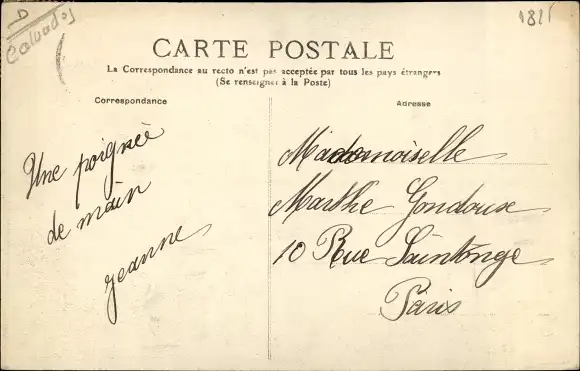 D
Calvados
182
CARTE POSTALE
La Correspondance au recto n'est pas acceptée par tous les pays étrangers
(Se renseigner à la Poste)
Correspondance
Adresse
Une poignée
de main
Jeanne
Mademoiselle
Marthe Gondouse
10 Rue Saintonge
Paris